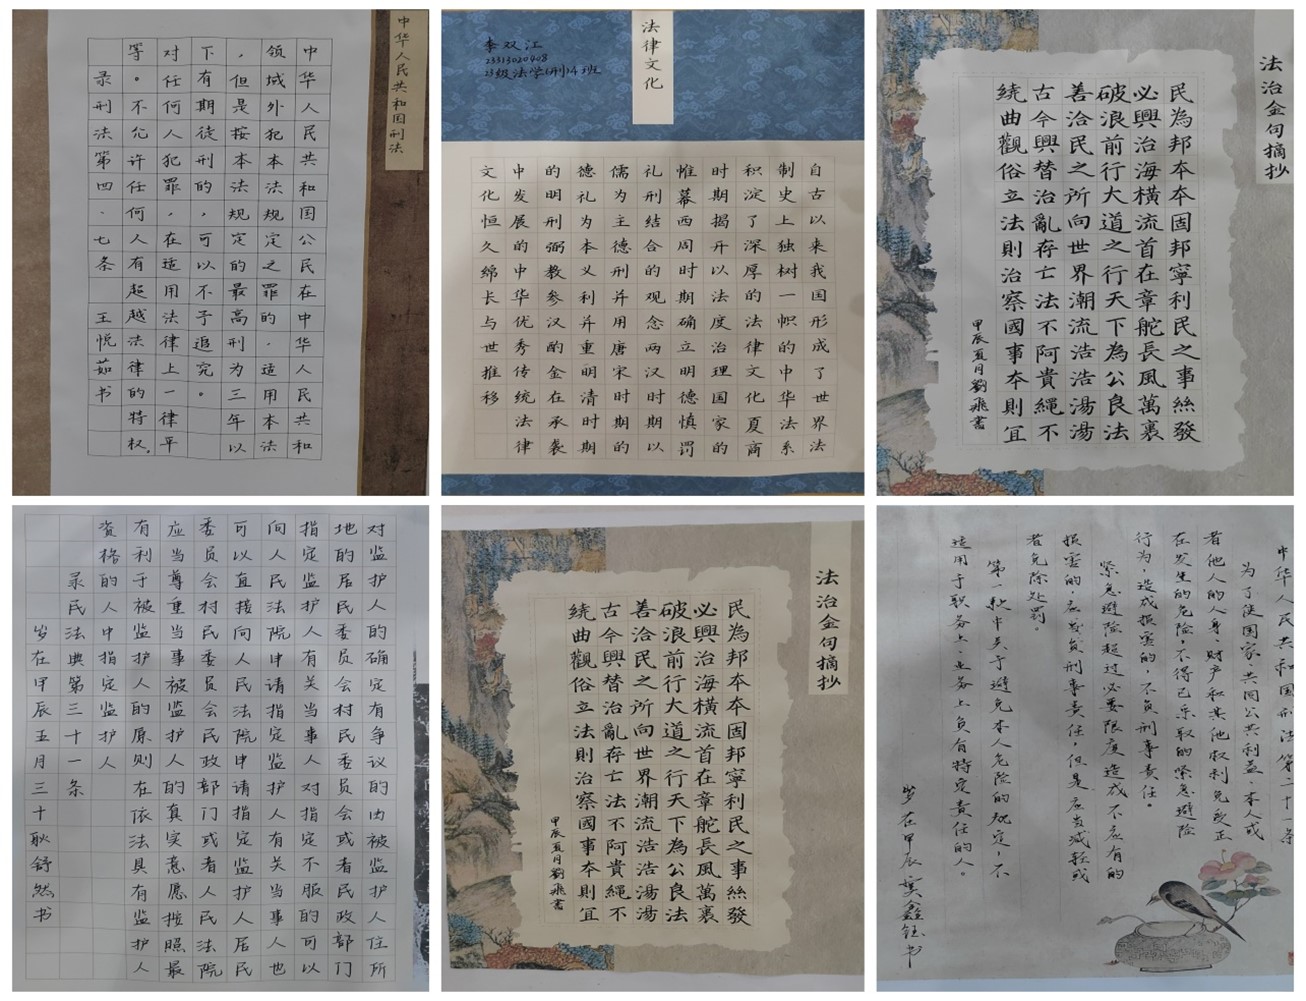 中华人民共和国刑法
中华人民共和国公民在中华人民共和
领域外犯本法规定之罪的，适用本法
，但是按本法规定的最高刑为三年以
下有期徒刑的，可以不予追究。
对任何人犯罪，在适用法律上一律平
等。不允许任何人有超越法律的特权。
录刑法第四、七条 王悦茹书
法律文化
李双江
23313020408
23级法学(刑)4班
自古以来我国形成了世界法
制史上独树一帜的中华法系
积淀了深厚的法律文化夏商
时期揭开以法度治理国家的
帷幕西周时期确立明德慎罚
礼刑结合的观念两汉时期以
儒为主德刑并用唐宋时期的
德礼为本义利并重明清时期
的明刑弼教参汉酌金在承袭
中发展的中华优秀传统法律
文化恒久绵长与世推移
法治金句摘抄
民為邦本本固邦寧利民之事絲發
必興治海橫流首在章舵長風萬裏
破浪前行大道之行天下為公良法
善治民之所向世界潮流浩浩湯湯
古今興替治亂存亡法不阿貴繩不
繞曲觀俗立法則治察國事本則宜
甲辰五月劉飛書
对监护人的确定有争议的由被监护人住所
地的居民委员会村民委员会或者民政部门
指定监护人有关当事人对指定不服的可以
向人民法院申请指定监护人有关当事人也
可以直接向人民法院申请指定监护人居民
委员会村民委员会民政部门或者人民法院
应当尊重当事被监护人的真实意愿按照最
有利于被监护人的原则在依法具有监护人
资格的人中指定监护人
录民法典第三十一条
岁在甲辰五月三十耿舒然书
法治金句摘抄
民為邦本本固邦寧利民之事絲發
必興治海橫流首在章舵長風萬裏
破浪前行大道之行天下為公良法
善治民之所向世界潮流浩浩湯湯
古今興替治亂存亡法不阿貴繩不
繞曲觀俗立法則治察國事本則宜
甲辰五月劉飛書
中华人民共和国刑法第二十一条
为了使国家、共同公共利益、本人或
者他人的人身、财产和其他权利免受正
在发生的危险，不得已采取的紧急避险
行为，造成损害的，不负刑事责任。
紧急避险超过必要限度造成不应有的
损害的，应当负刑事责任，但是应当减轻或
者免除处罚。
第一款中关于避免本人危险的规定，不
适用于职务上、业务上负有特定责任的人。
岁在甲辰 鑫钰书